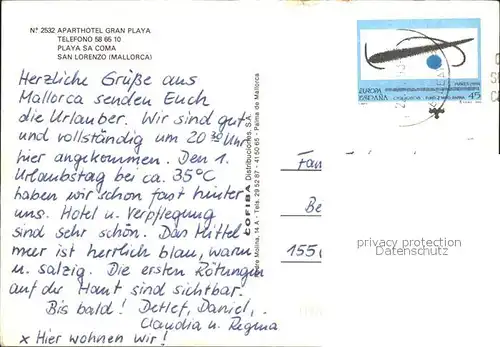 Nº 2532 APARTHOTEL GRAN PLAYA
TELEFONO 58 65 10
PLAYA SA COMA
SAN LORENZO (MALLORCA)
Herzliche Grüße aus
Mallorca senden Euch
die Urlauber. Wir sind gut
und vollständig um 20 30 Uhr
hier angekommen. Den 1.
Urlaubstag bei ca. 35°C
haben wir schon fast hinter
uns. Hotel u. Verpflegung
sind sehr schön. Das Mittel
meer ist herrlich blau, warm
u. salzig. Die ersten Rötungen
auf der Haut sind sichtbar.
Bis bald! Detlef, Daniel,
Claudia u. Regina
x Hier wohnen wir!
COFIBA Distribuciones, S.A.
Molina, 14 A - Tels. 29 52 87 - 41 50 65 - Palma de Mallorca
EUROPA
ESPAÑA
45
Fam
Be
155
privacy protection
Datenschutz